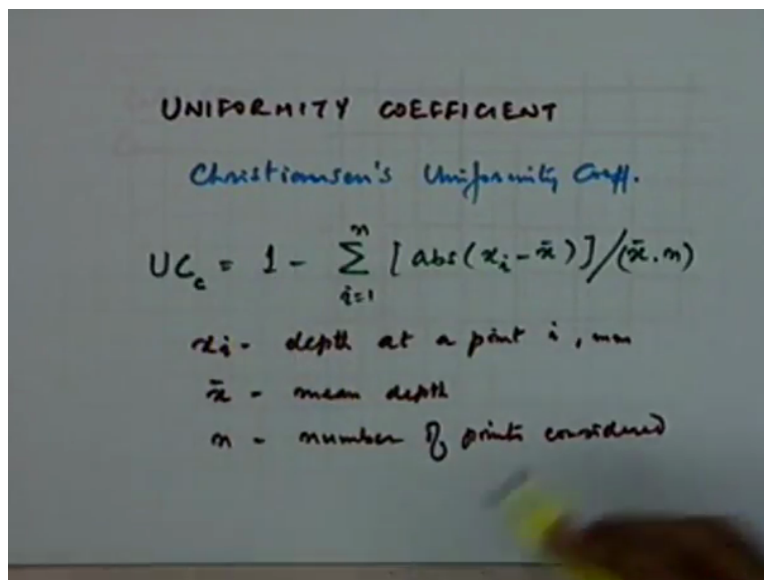 UNIFORMITY COEFFICIENT
Christiansen's Uniformity Coeff.
UC_c = 1 - \sum_{i=1}^{n} [abs(x_i - x̄)]/(x̄.n)
x_i - depth at a point i, mm
x̄ - mean depth
n - number of points considered